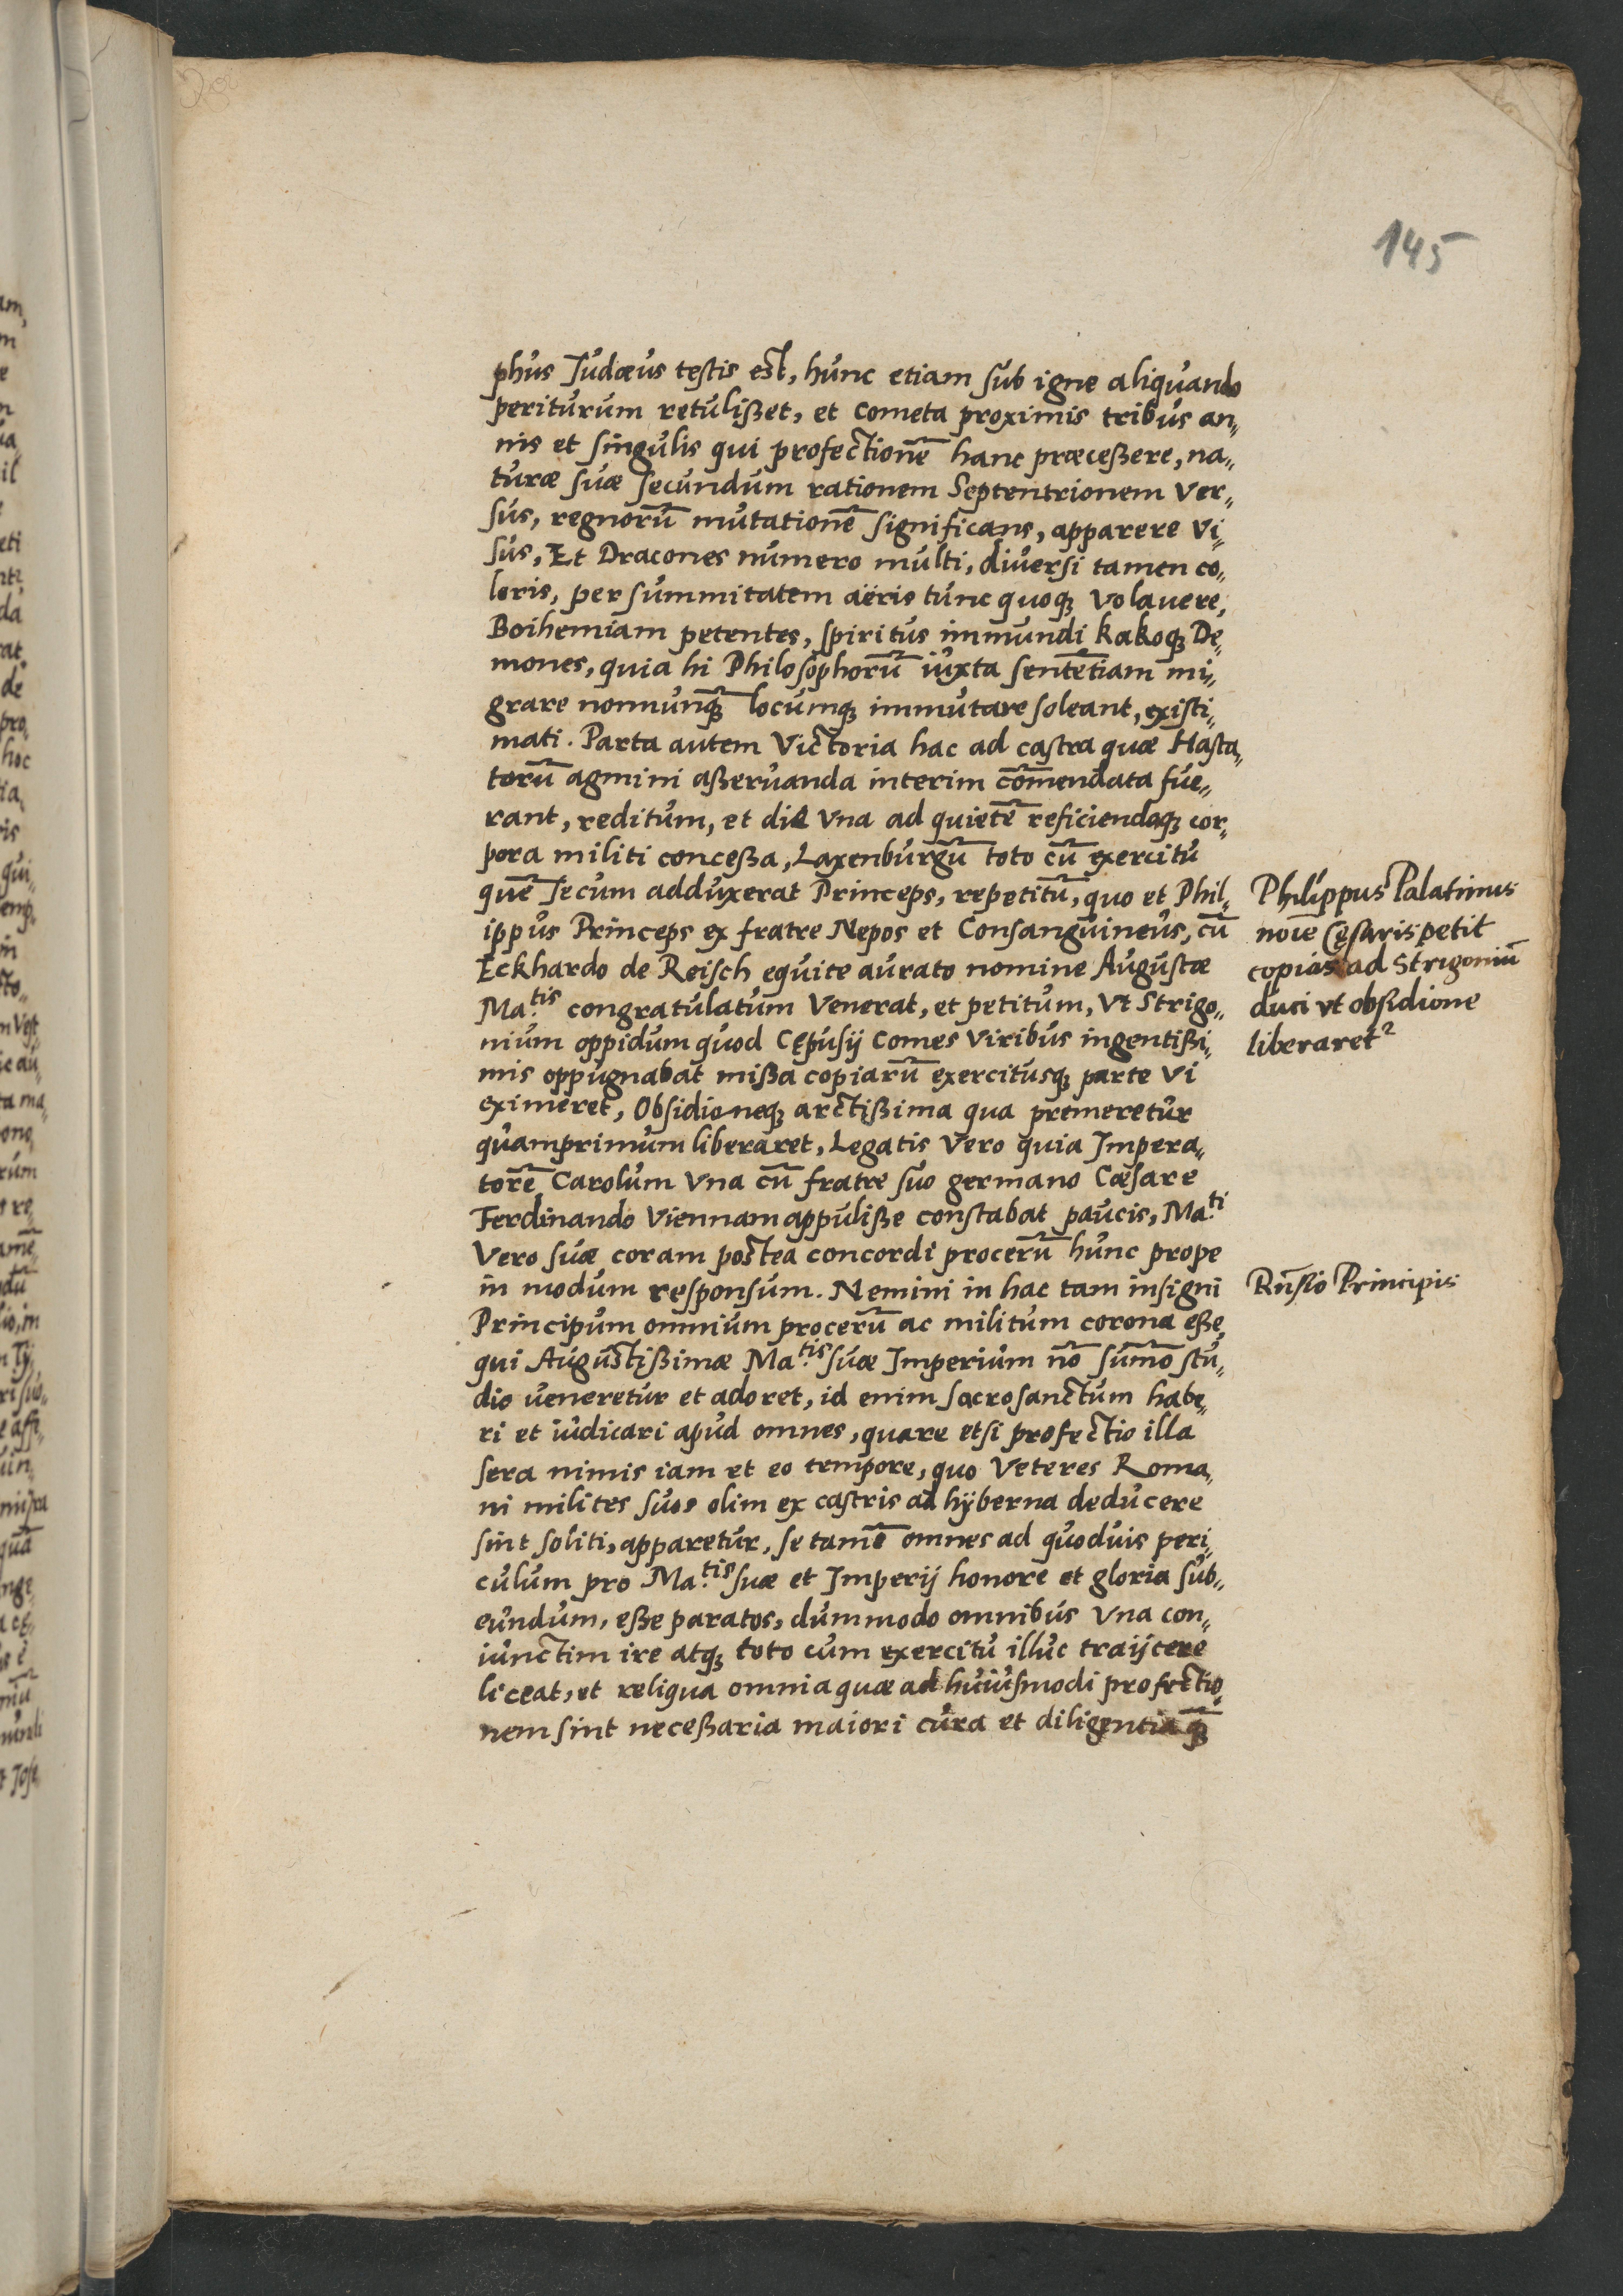 145
phus Judæus testis est, hunc etiam sub igne aliquando
periturum retulißet, et cometa proximis tribus an„
nis et singulis qui profectionē hanc præceßere, na„
turæ suæ secundum rationem Septentrionem ver„
sus, regnorū mutationē significans, apparere vi„
sus, Et Dracones numero multi, diversi tamen co„
loris, per summitatem aëris tunc quoq; volavere,
Boihemiam petentes, spiritus immundi kakoq; De„
mones, quia hi Philosophorū iuxta sentētiam mi„
grare nonnunq̄; locumq; immutare soleant, existi„
mati. Parta autem Victoria hac ad castra quæ Hasta„
torū agmini aßervanda interim cōmendata fue„
rant, reditum, et die vna ad quietē reficiendaq; cor„
pora militi conceßa, Laxenburgū toto cū exercitu
quē secum adduxerat Princeps, repetitū, quo et Phil„
ippus Princeps ex fratre Nepos et Consanguineus, cū
Eckhardo de Reisch equite aurato nomine Augustæ
Ma.tis congratulatum venerat, et petitum, vt Strigo„
nium oppidum quod Cępusij Comes viribus ingentißi„
mis oppugnabat mißa copiarū exercitusq; parte vi
eximeret, Obsidioneq; arctißima qua premeretur
quamprimum liberaret, Legatis vero quia Impera„
torē Carolum vna cū fratre suo germano Cæsare
Ferdinando Viennam appuliße constabat paucis, Ma.ti
vero suæ coram postea concordi procerū hunc prope
in modum responsum. Nemini in hac tam insigni
Principum omnium procerū ac militum corona eße
qui Augustißimæ Ma.tis suæ Imperium nō sum̄o stu„
dio veneretur et adoret, id enim sacrosanctum habe„
ri et iudicari apud omnes, quare etsi profectio illa
sera nimis iam et eo tempore, quo veteres Roma„
ni milites suos olim ex castris ad hÿberna deducere
sint soliti, apparetur, se tamē omnes ad quodvis peri„
culum pro Ma.tis suæ et Imperij honore et gloria sub„
eundum, eße paratos, dummodo omnibus vna con„
iunctim ire atq; toto cum exercitu illuc traijcere
liceat, et reliqua omnia quæ ad huiusmodi profectio„
nem sint neceßaria maiori cura et diligentia q̄;
Philippus Palatinus
noīe Cęsaris petit
copias ad Strigoniū
duci vt obsidione
liberaret²
Rn̄sio Principis